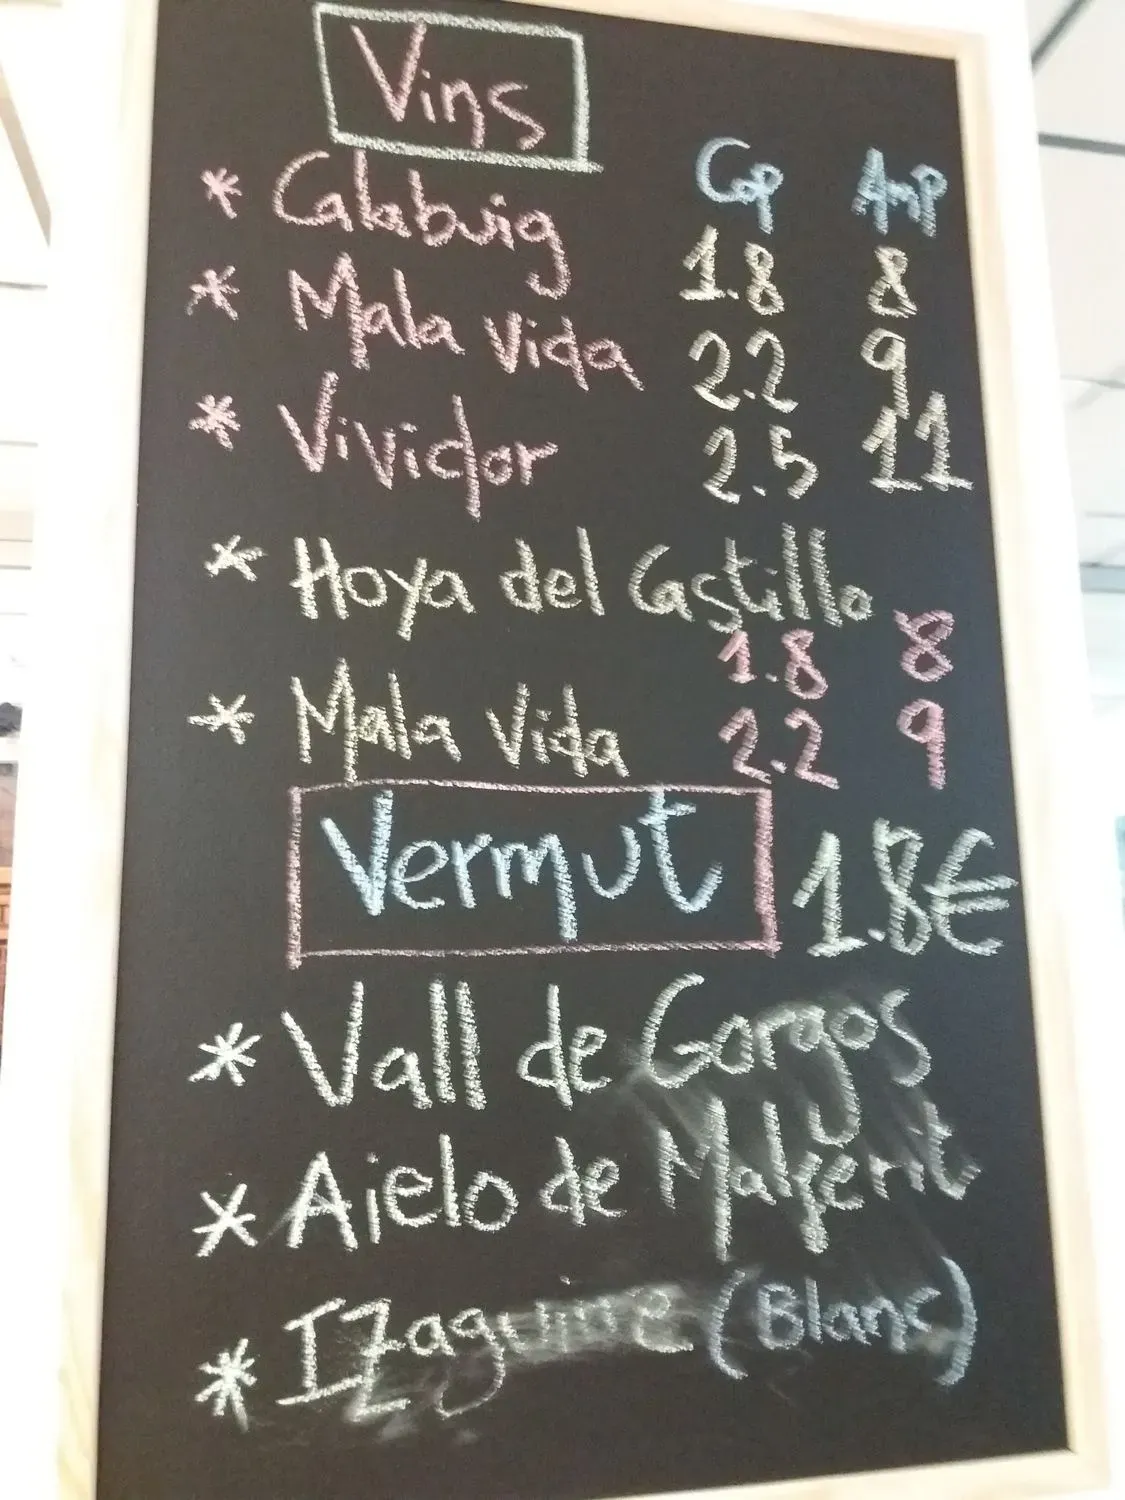 Vins
Cop Amp
* Calabuig 1.8 8
* Mala Vida 2.2 9
* Vividor 2.5 11
* Hoya del Castillo
1.8 8
* Mala Vida 2.2 9
Vermut 1.8€
* Vall de Gorgos
* Aielo de Malferit
* IZaguirre (Blanc)